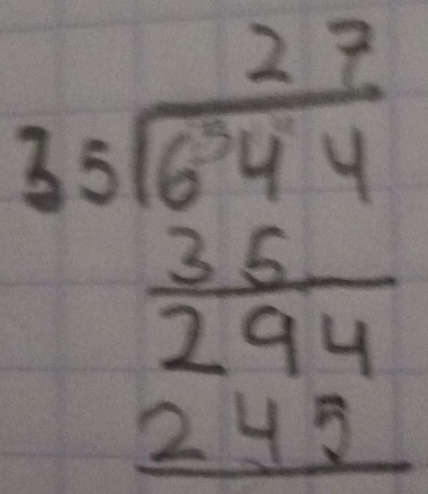 27
35 644
35
294
245